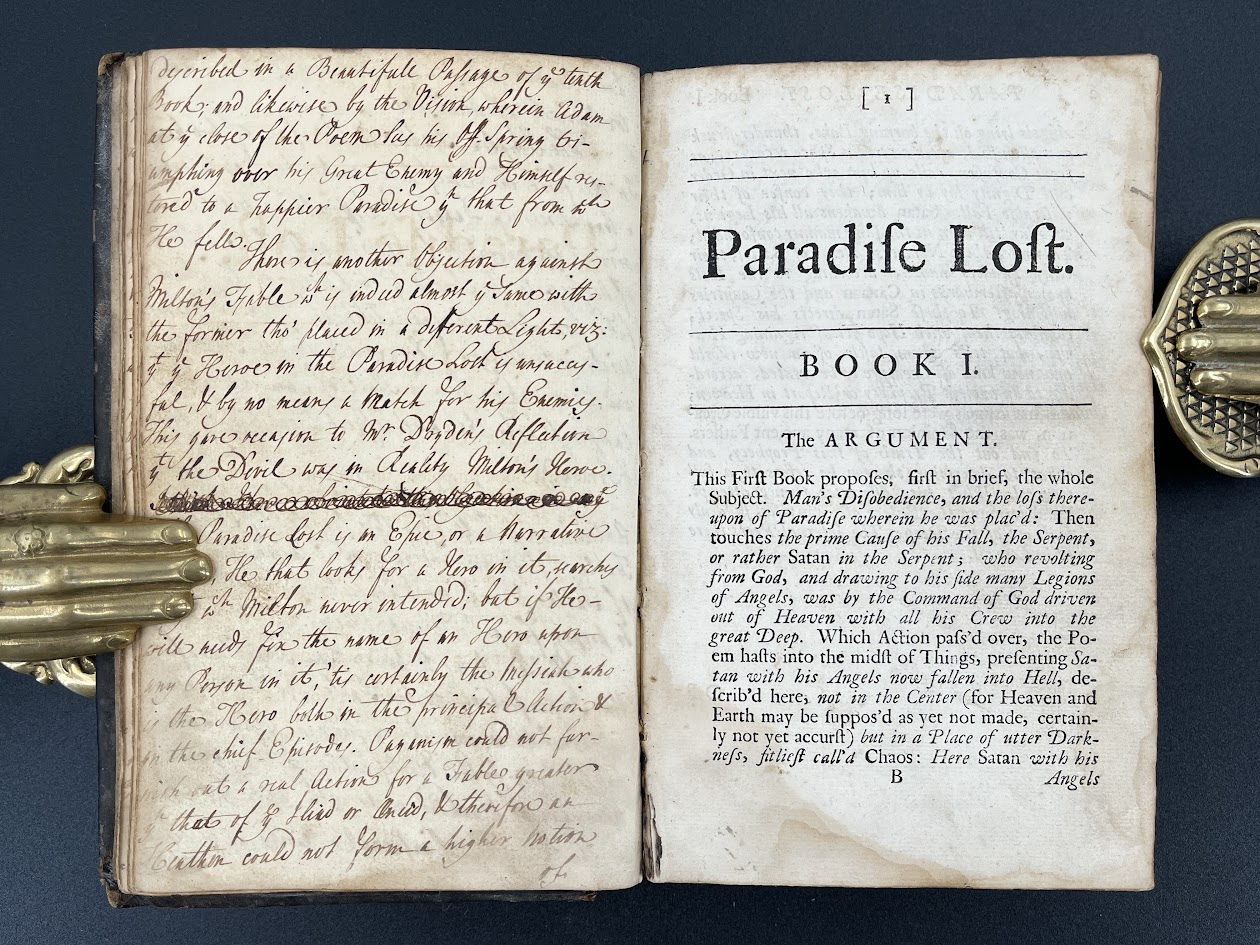 described in a Beautifull Passage of yͤ tenth
Book; and likewise by the Vision, wherein Adam
at yͤ close of the Poem sees his Off-Spring tri-
umphing over his Great Enemy and Himself res-
tored to a happier Paradise yⁿ that from wᶜʰ
He fell.
There is another Objection against
Milton's Fable wᶜʰ is indeed almost yͤ Same with
the former tho' placed in a different Light, viz:
yᵗ yͤ Heroe in the Paradise Lost is unsucces-
ful, & by no means a Match for his Enemies.
This gave occasion to Mr. Dryden's Reflection
yᵗ the Devil was in Reality Milton's Heroe.
Paradise Lost is an Epic, or a Narrative
He that looks for a Hero in it, searches
wᶜʰ Milton never intended; but if He
will needs fix the name of an Hero upon
any Person in it, 'tis certainly the Messiah who
is the Hero both in the principal Action &
in the chief Episodes. Paganism could not fur-
nish out a real Action for a Fable greater
yⁿ that of yͤ Iliad or Æneid, & therefore an
Heathen could not form a higher notion
of
[ 1 ]
Paradiſe Loſt.
BOOK I.
The ARGUMENT.
This Firſt Book propoſes, firſt in brief, the whole
Subject. Man's Diſobedience, and the loſs there-
upon of Paradiſe wherein he was plac'd: Then
touches the prime Cauſe of his Fall, the Serpent,
or rather Satan in the Serpent; who revolting
from God, and drawing to his ſide many Legions
of Angels, was by the Command of God driven
out of Heaven with all his Crew into the
great Deep. Which Action paſs'd over, the Po-
em haſts into the midſt of Things, preſenting Sa-
tan with his Angels now fallen into Hell, de-
ſcrib'd here, not in the Center (for Heaven and
Earth may be ſuppos'd as yet not made, certain-
ly not yet accurſt) but in a Place of utter Dark-
neſs, fitlieſt call'd Chaos: Here Satan with his
B Angels